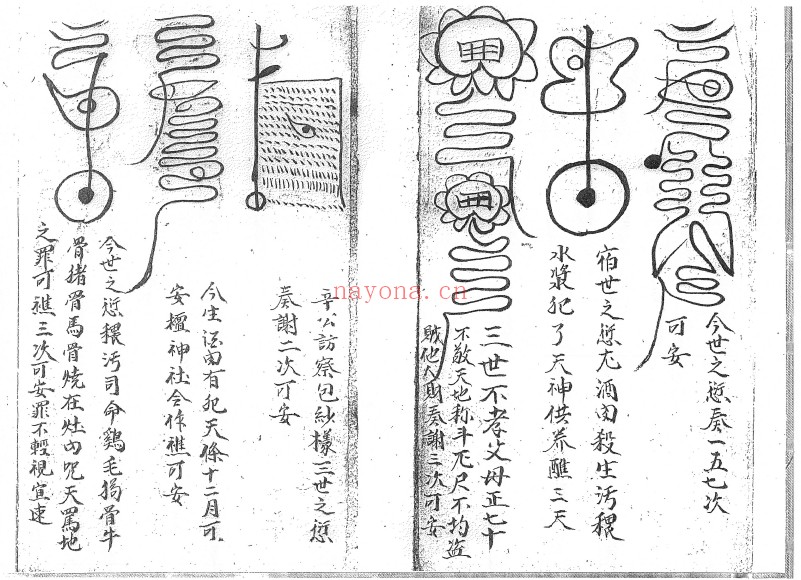 今世之愆奏一五七次
可安
宿世之愆尤酒肉殺生污穢
水漿犯了天神供养醮三天
三世不孝父母正七十
不敬天地称斗尺不均盗
賊他人財奏謝三次可安
辛公訪察包紗樣三世之愆
奏謝二次可安
今生酒肉有犯天條十二月可
安櫃神社令作樵可安
今世之愆穢污司命鷄毛骨牛
骨猪骨馬骨燒在灶内咒天罵地
之罪可樵三次可安罪不輕視宜速
nayona.cn